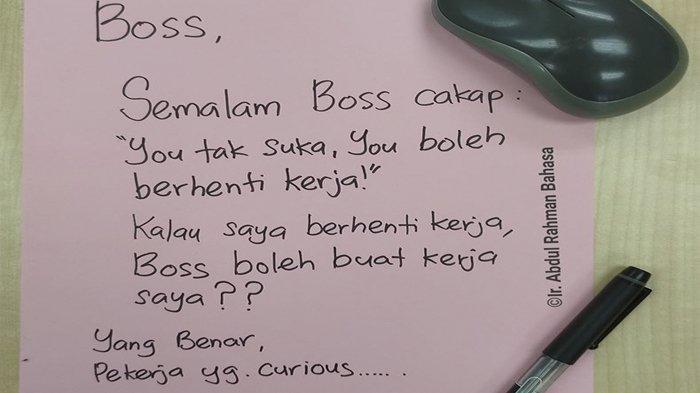 Boss,
Semalam Boss cakap :
"You tak suka, You boleh
berhenti kerja!"
Kalau saya berhenti kerja,
Boss boleh buat kerja
saya??
Yang Benar,
Pekerja yg. curious......
©Ir. Abdul Rahman Bahasa